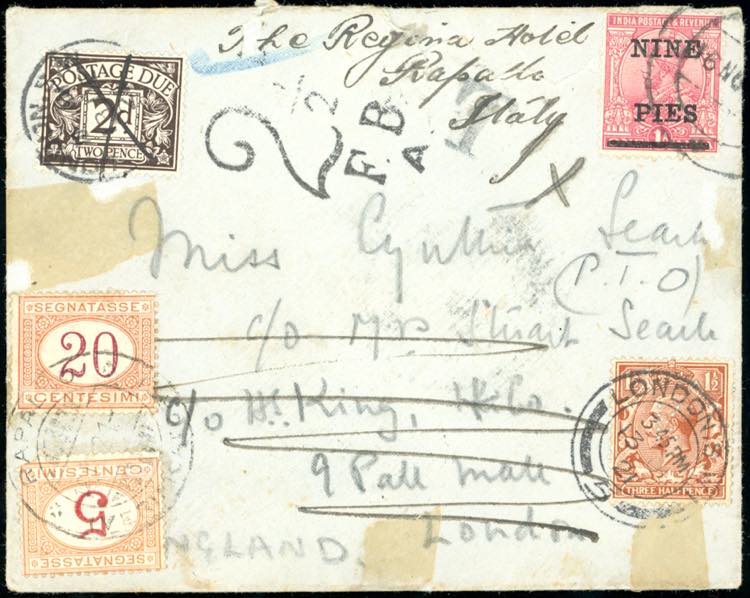 The Regina Hotel
Rapallo
Italy
INDIA POSTAGE & REVENUE
NINE
PIES
POSTAGE DUE
2d
TWO PENCE
2 1/2
F.B.
A
T
Miss Cynthia Searle
(P.T.O)
c/o Mrs Stuart Searle
c/o H.S. King, & Co.
9 Pall Mall
London
ENGLAND.
SEGNATASSE
20
CENTESIMI
SEGNATASSE
5
CENTESIMI
LONDON S.W
3.45 PM
THREE HALFPENCE
1½